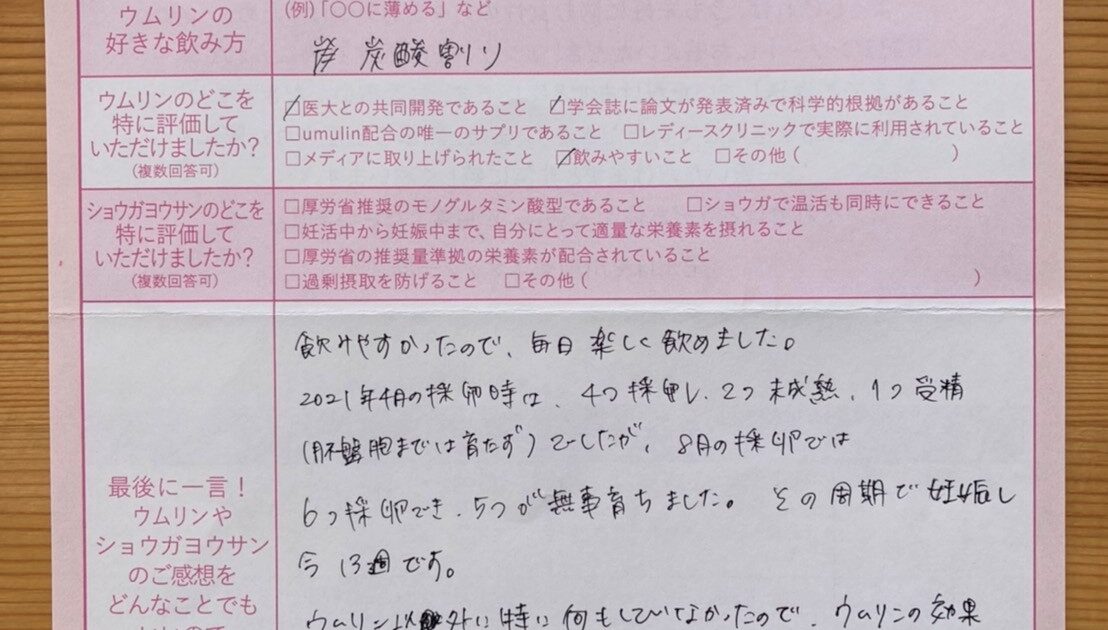 ウムリンの
好きな飲み方
(例)「〇〇に薄める」など
炭酸割り
ウムリンのどこを
特に評価して
いただけましたか?
(複数回答可)
☑医大との共同開発であること ☑学会誌に論文が発表済みで科学的根拠があること
□umulin配合の唯一のサプリであること □レディースクリニックで実際に利用されていること
□メディアに取り上げられたこと ☑飲みやすいこと □その他( )
ショウガヨウサンのどこを
特に評価して
いただけましたか?
(複数回答可)
□厚労省推奨のモノグルタミン酸型であること □ショウガで温活も同時にできること
□妊活中から妊娠中まで、自分にとって適量な栄養素を摂れること
□厚労省の推奨量準拠の栄養素が配合されていること
□過剰摂取を防げること □その他( )
最後に一言!
ウムリンや
ショウガヨウサン
のご感想を
どんなことでも
飲みやすかったので、毎日楽しく飲めました。
2021年4月の採卵時は、4つ採卵し、2つ未成熟、1つ受精
(胚盤胞までは育たず)でしたが、8月の採卵では
6つ採卵でき、5つが無事育ちました。その周期で妊娠し
今13週です。
ウムリン以外に特に何もしていなかったので、ウムリンの効果